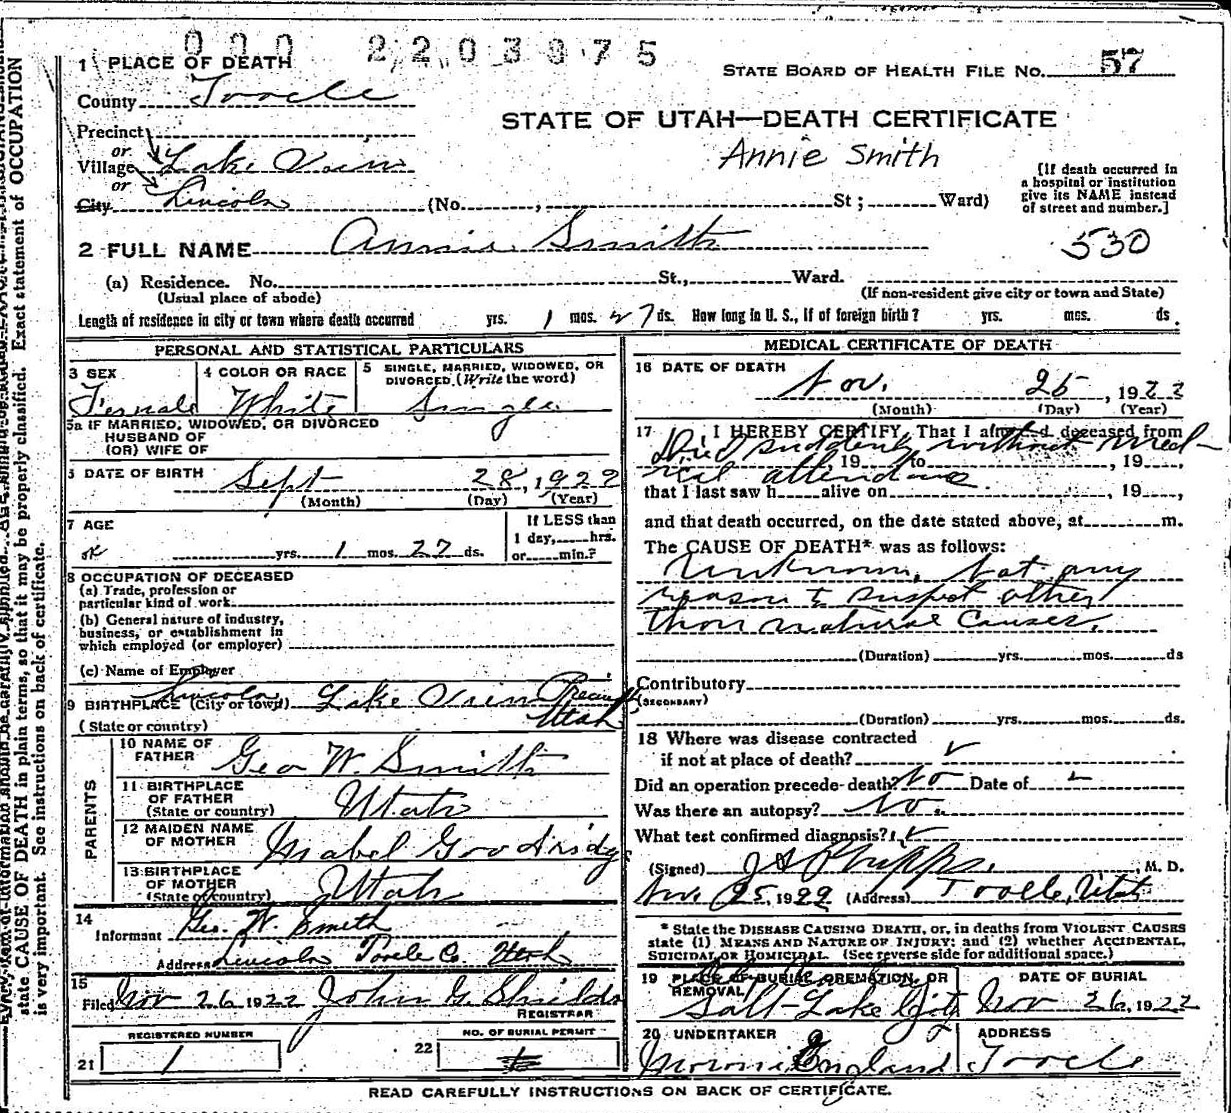 000 2203975
1 PLACE OF DEATH
STATE BOARD OF HEALTH FILE No. 57
County Tooele
STATE OF UTAH—DEATH CERTIFICATE
Precinct
or
Annie Smith
Village Lake View
or
City Lincoln (No. , St; Ward)
[If death occurred in a hospital or institution give its NAME instead of street and number.]
2 FULL NAME Annie Smith
530
(a) Residence. No. St., Ward.
(Usual place of abode)
(If non-resident give city or town and State)
Length of residence in city or town where death occurred yrs. 1 mos. 27 ds. How long in U. S., if of foreign birth? yrs. mos. ds.
PERSONAL AND STATISTICAL PARTICULARS
3 SEX
Female
4 COLOR OR RACE
White
5 SINGLE, MARRIED, WIDOWED, OR
DIVORCED. (Write the word)
Single
5a IF MARRIED, WIDOWED, OR DIVORCED
HUSBAND OF
(OR) WIFE OF
6 DATE OF BIRTH Sept 28, 1922
(Month) (Day) (Year)
7 AGE
yrs. 1 mos. 27 ds.
If LESS than
1 day, hrs.
or min.?
8 OCCUPATION OF DECEASED
(a) Trade, profession or
particular kind of work
(b) General nature of industry,
business, or establishment in
which employed (or employer)
(c) Name of Employer
9 BIRTHPLACE (City or town) Lincoln, Lake View Precinct,
(State or country) Utah
PARENTS
10 NAME OF
FATHER Geo W. Smith
11 BIRTHPLACE
OF FATHER
(State or country) Utah
12 MAIDEN NAME
OF MOTHER Mabel Goodridge
13 BIRTHPLACE
OF MOTHER
(State or country) Utah
14
Informant Geo. W. Smith
Address Lincoln Tooele Co. Utah
15
Filed Nov 26 1922 John G. Shields
REGISTRAR
REGISTERED NUMBER
21 1
NO. OF BURIAL PERMIT
22
MEDICAL CERTIFICATE OF DEATH
16 DATE OF DEATH
Nov. 25, 1922
(Month) (Day) (Year)
17 I HEREBY CERTIFY, That I attended deceased from
Died suddenly without med-
, 19 to , 19 ,
ical attendance.
that I last saw h alive on , 19 ,
and that death occurred, on the date stated above, at m.
The CAUSE OF DEATH* was as follows:
Unknown, not any
reason to suspect other
than natural causes.
(Duration) yrs. mos. ds
Contributory
(SECONDARY)
(Duration) yrs. mos. ds.
18 Where was disease contracted
if not at place of death?
Did an operation precede death? No Date of
Was there an autopsy? No.
What test confirmed diagnosis?
(Signed) J A Phipps, M. D.
Nov. 25, 1922 (Address) Tooele, Utah
* State the DISEASE CAUSING DEATH, or, in deaths from VIOLENT CAUSES
state (1) MEANS AND NATURE OF INJURY; and (2) whether ACCIDENTAL,
SUICIDAL OR HOMICIDAL. (See reverse side for additional space.)
19 PLACE OF BURIAL, CREMATION, OR
REMOVAL
Salt Lake City
DATE OF BURIAL
Nov 26, 1922
20 UNDERTAKER
Moroni England
ADDRESS
Tooele
READ CAREFULLY INSTRUCTIONS ON BACK OF CERTIFICATE.
state CAUSE OF DEATH in plain terms, so that it may be properly classified. Exact statement of OCCUPATION
is very important. See instructions on back of certificate.